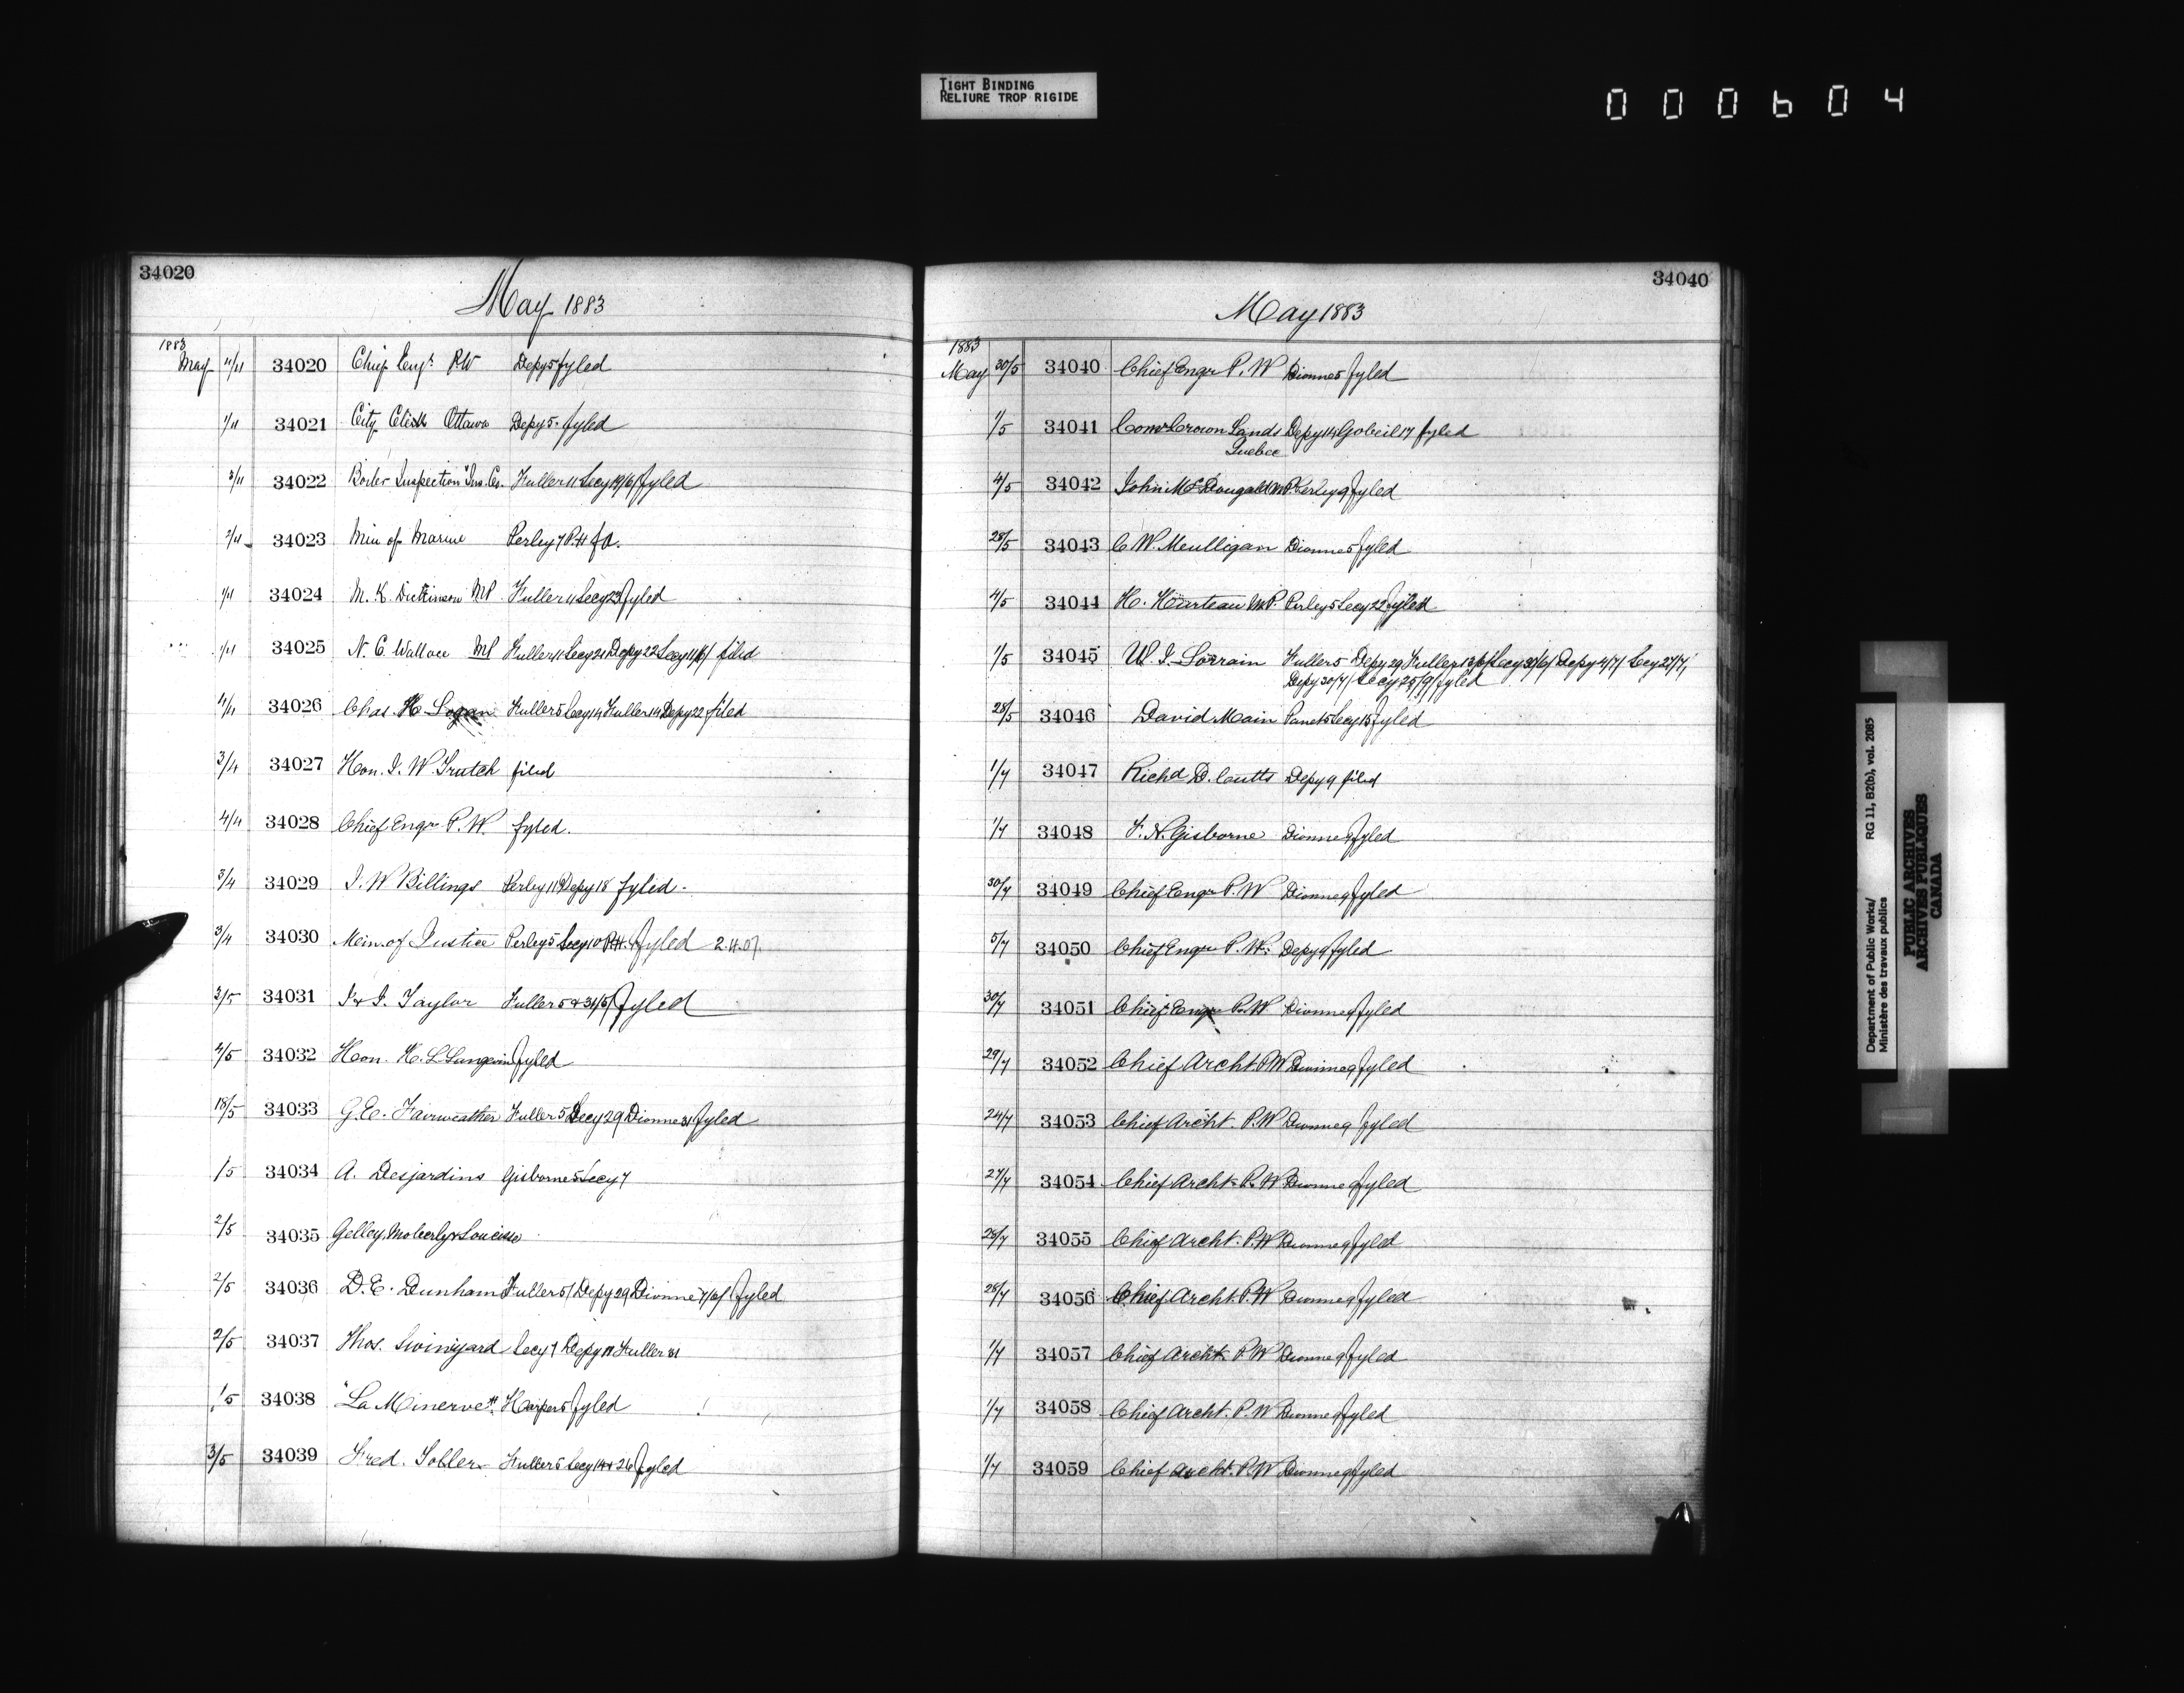 TIGHT BINDING
RELIURE TROP RIGIDE
000604
34020
May 1883
1883
May 4/4 34020 Chief Engr PW Depy 5 fyled
1/4 34021 City Clerk Ottawa Depy 5. fyled
3/4 34022 Boiler Inspection Ins. Co. Fuller 11 Secy 19/6/ fyled
2/4 34023 Min of Marine Perley 7 P.H fd.
1/4 34024 M. K. Dickinson MP Fuller 11 Secy 23 fyled
1/4 34025 N. C. Wallace MP Fuller 11 Secy 21 Depy 22 Secy 11/6/ filed
4/4 34026 Chas. H Logan Fuller 5 Secy 14 Fuller 14 Depy 22 filed
3/4 34027 Hon. J. W. Trutch filed
4/4 34028 Chief Engr P. W. fyled.
3/4 34029 J. W Billings Perley 11 Depy 18 fyled.
3/4 34030 Min. of Justice Perley 5 Secy 10 P.H. fyled 2.4.07.
3/5 34031 J & J. Taylor Fuller 5 & 31/5/ fyled
4/5 34032 Hon. H. L Langevin fyled
18/5 34033 G. E. Fairweather Fuller 5 Secy 29 Dionne 31 fyled
1/5 34034 A. Desjardins Gisborne 5 Secy 7
2/5 34035 Gelley, Moberly &
2/5 34036 D. E. Dunham Fuller 5/ Depy 29 Dionne 7/6/ fyled
2/5 34037 Thos. Swinyard Secy 7 Depy 18 Fuller 31
1/5 34038 "La Minerve". Harper 5 fyled
3/5 34039 Fred. Toller Fuller 5 Secy 14 & 26 fyled
34040
May 1883
1883
May 30/5 34040 Chief Engr P. W Dionne 5 fyled
1/5 34041 Comr Crown Lands Depy 14 Gobeil 17 fyled
Quebec
4/5 34042 John McDougald MP. Perley 9 fyled
28/5 34043 C. W. Meulligan Dionne 5 fyled
4/5 34044 H. Hourteau MP. Perley 5 Secy 22 fyled
1/5 34045 W. J. Lorrain Fuller 5 Depy 29 Fuller 13/6/ Secy 30/6/ Depy 4/7/ Secy 27/7/
Depy 30/7/ Secy 25/9/ fyled
28/5 34046 David Main Panet 5 Secy 15 fyled
1/7 34047 Richd D. Coutts Depy 9 filed
1/7 34048 F. N. Gisborne Dionne 9 fyled
30/7 34049 Chief Engr P. W Dionne 9 fyled
5/7 34050 Chief Engr P. W. Depy 9 fyled
30/7 34051 Chief Engr P. W Dionne 9 fyled
29/7 34052 Chief Archt. P.W Dionne 9 fyled
24/7 34053 Chief Archt. P.W Dionne 9 fyled
27/7 34054 Chief Archt. P. W Dionne 9 fyled
28/7 34055 Chief Archt. P.W Dionne 9 fyled
28/7 34056 Chief Archt. P. W Dionne 9 fyled
1/7 34057 Chief Archt. P.W Dionne 9 fyled
1/7 34058 Chief Archt. P. W Dionne 9 fyled
1/7 34059 Chief Archt. P.W Dionne 9 fyled
Department of Public Works/ RG 11, B2(b), vol. 2085
Ministère des travaux publics
PUBLIC ARCHIVES
ARCHIVES PUBLIQUES
CANADA